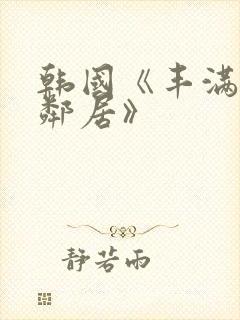 韩国《丰满
邻居》
静若雨